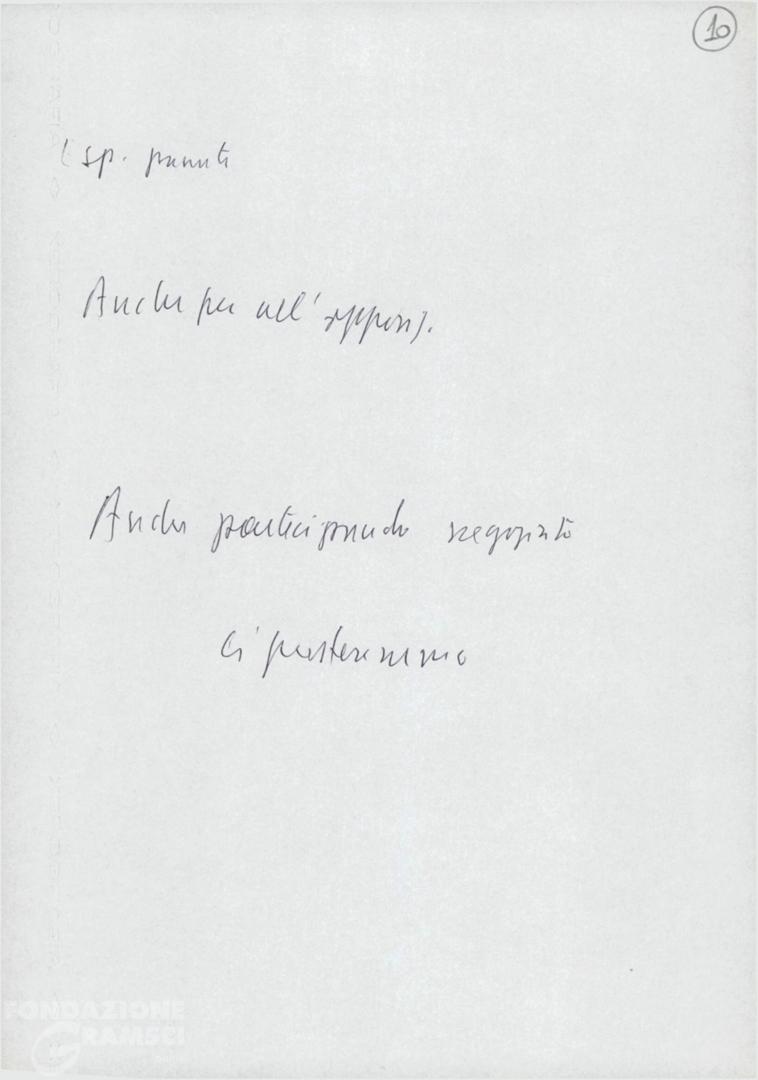 10
sp.
Anche per all'opposiz.
Anche partecipando negoziato
ci presteremmo
FONDAZIONE
GRAMSCI